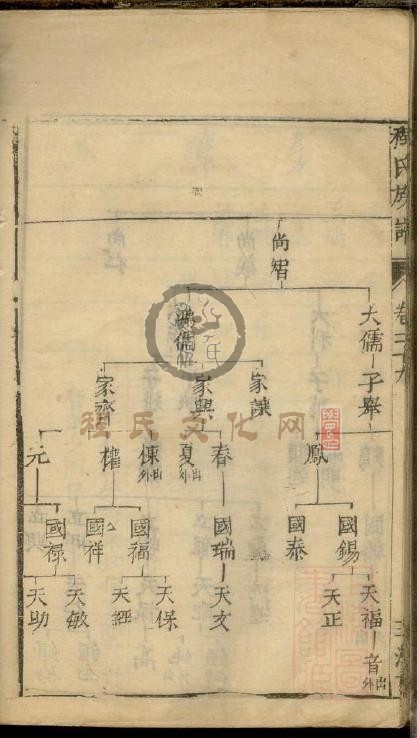 程氏族譜
卷三十九
尚煃
大儒
子舉
鴻儒
家讓
家興
家齊
鳳
春
夏外出
權
元
國錫
國泰
國瑞
國福
國祥
國祿
天福
音外出
天正
天文
天保
天經
天敏
天助
程氏文化网